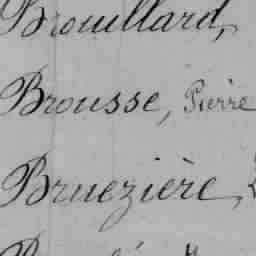 Brouillard,
Brousse, Pierre
Bruezière,